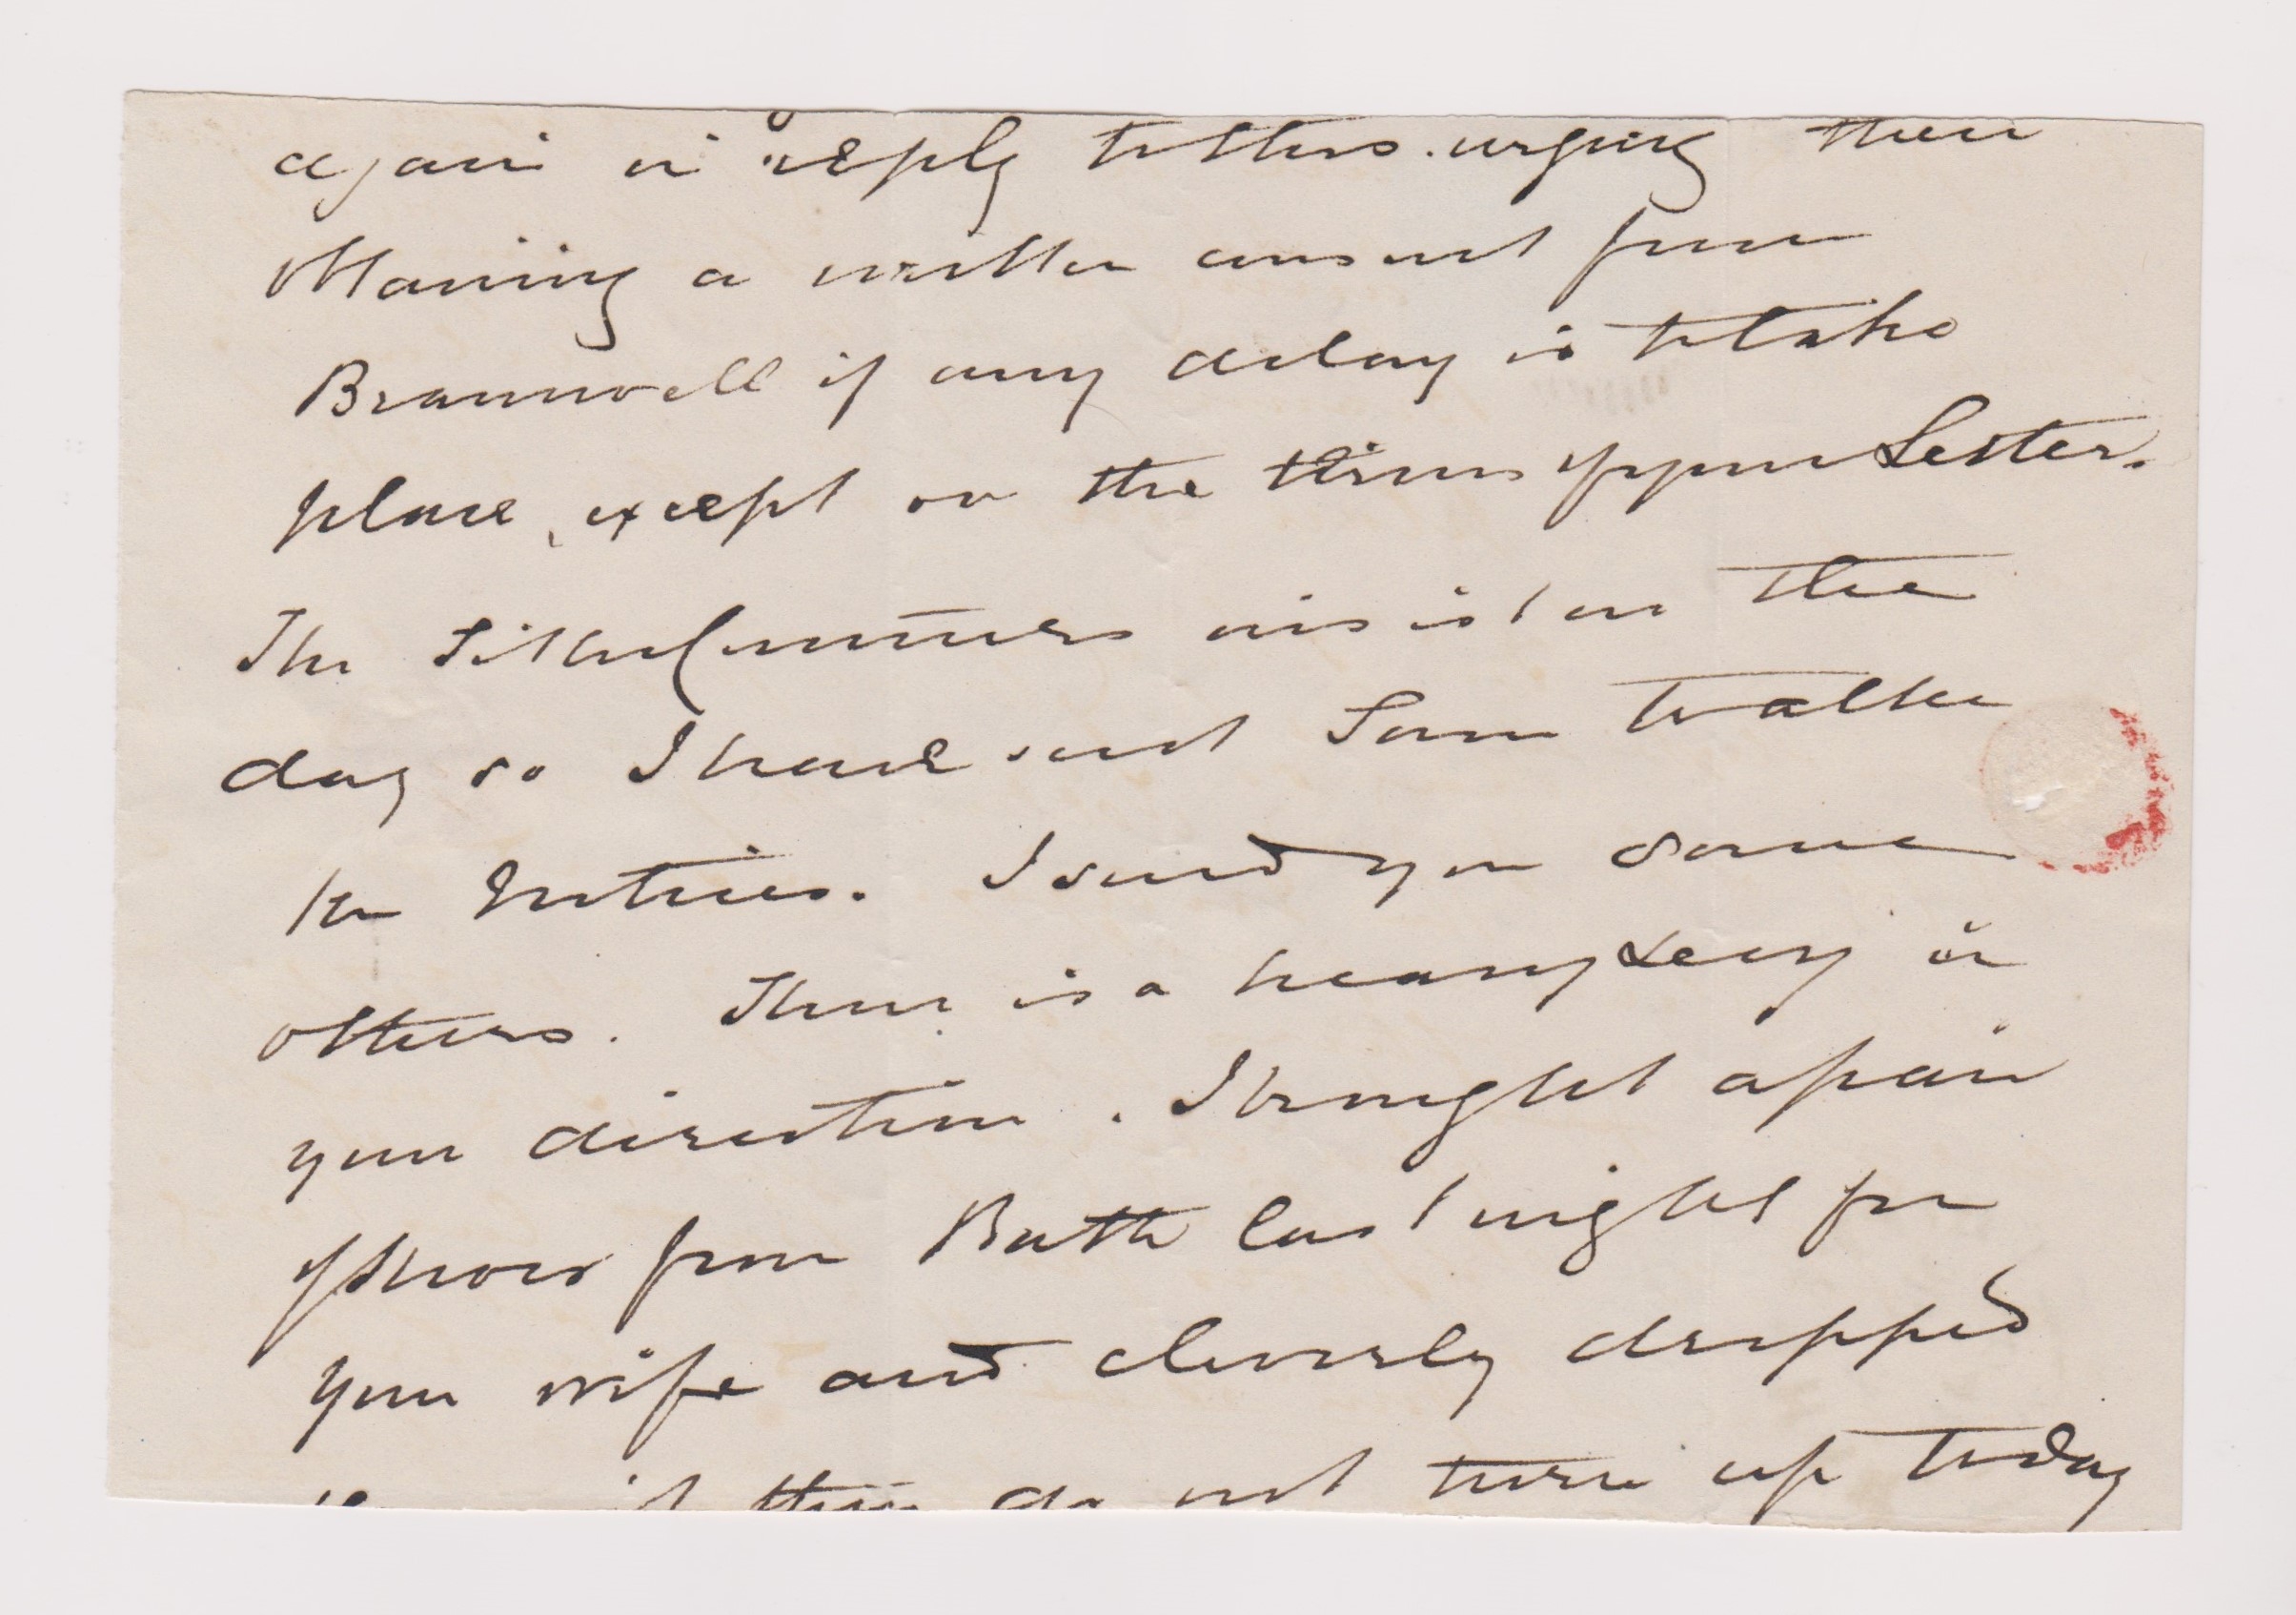 again in reply to this. urging their
obtaining a written consent from
Bramwell if any delay is to take
place, except on the terms of your Letter.
The insist on the
day so I have sent Sam
the Notices. I send you some
others. There is a heavy Levy in
your direction. I brought a pair
of Shoes from Bath last night for
your wife and cleverly dropped
if they do not turn up today